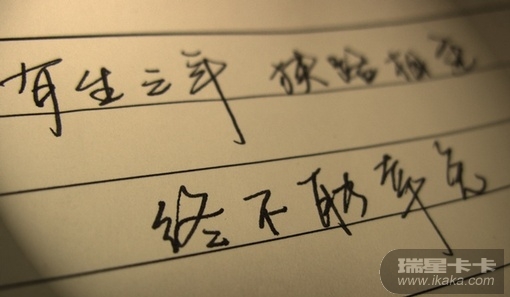 有生之年 狭路相逢
终不能幸免
瑞星卡卡
www.ikaka.com